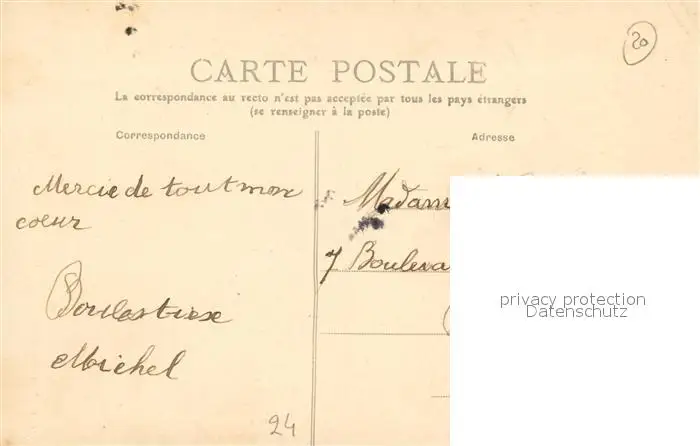 20
CARTE POSTALE
La correspondance au recto n'est pas acceptée par tous les pays étrangers
(se renseigner à la poste)
Correspondance
Adresse
Mercie de tout mon
coeur
Madam
7 Bouleva
privacy protection
Datenschutz
Michel
24